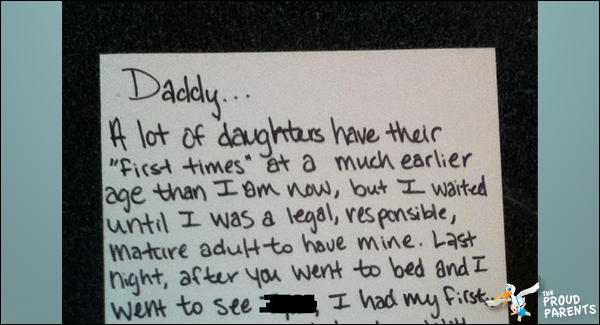 Daddy...
A lot of daughters have their
"first times" at a much earlier
age than I am now, but I waited
until I was a legal, responsible,
mature adult to have mine. Last
night, after you went to bed and I
went to see , I had my first
THE
PROUD
PARENTS